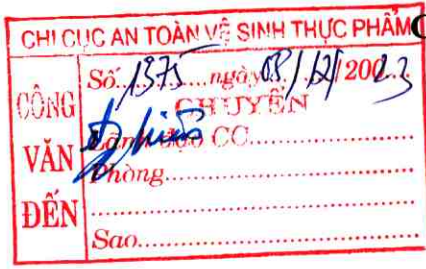 CHI CỤC AN TOÀN VỆ SINH THỰC PHẨM
CÔNG VĂN ĐẾN
Số 1375 ngày 08/12/2023
CHUYỂN
Lãnh đạo CC
Phòng
Sao